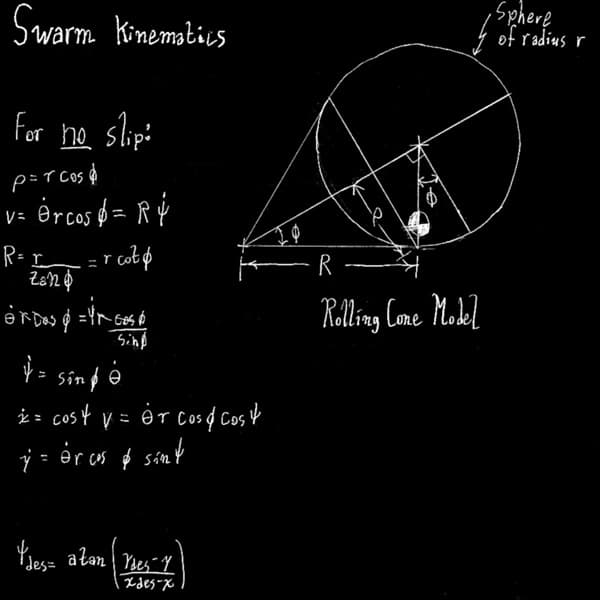 Swarm Kinematics
Sphere
of radius r
For no slip:
ρ = r cos ϕ
v = θ̇ r cos ϕ = R ψ̇
R = r / tan ϕ = r cot ϕ
θ̇ r cos ϕ = ψ̇ r cos ϕ / sin ϕ
ψ̇ = sin ϕ θ̇
ẋ = cos ψ v = θ̇ r cos ϕ cos ψ
ẏ = θ̇ r cos ϕ sin ψ
ψdes = atan (ydes - y / xdes - x)
ϕ
ρ
ϕ
R
Rolling Cone Model